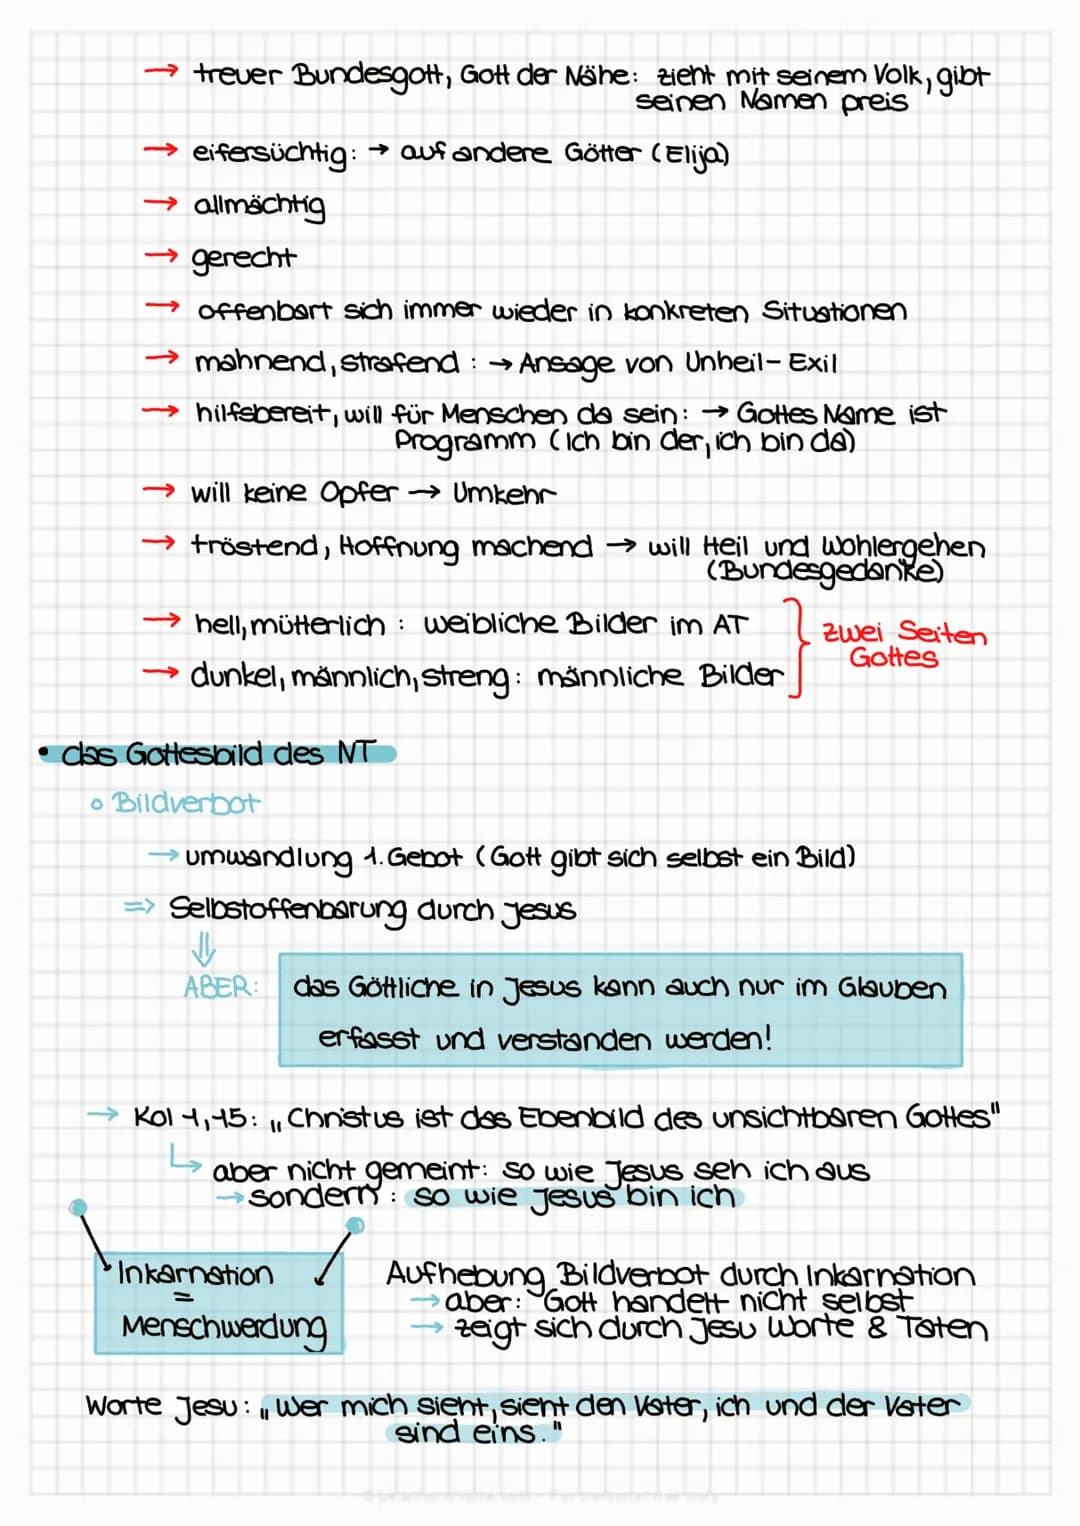 → treuer Bundesgott, Gott der Nähe: zieht mit seinem Volk, gibt
seinen Namen preis
→ eifersüchtig: → auf andere Götter (Elija)
→ allmächtig
→ gerecht
→ offenbart sich immer wieder in konkreten Situationen
→ mahnend, strafend : → Ansage von Unheil- Exil
→ hilfsbereit, will für Menschen da sein: → Gottes Name ist
Programm (Ich bin der, ich bin da)
→ will keine Opfer → Umkehr
→ tröstend, Hoffnung machend → will Heil und Wohlergehen
(Bundesgedanke)
→ hell, mütterlich : weibliche Bilder im AT
→ dunkel, männlich, streng: männliche Bilder
zwei Seiten
Gottes
• das Gottesbild des NT
∘ Bildverbot
→ umwandlung 1. Gebot (Gott gibt sich selbst ein Bild)
=> Selbstoffenbarung durch Jesus
⇓
ABER: das Göttliche in Jesus kann auch nur im Glauben
erfasst und verstanden werden!
→ Kol 1,15: „Christus ist das Ebenbild des unsichtbaren Gottes"
↳ aber nicht gemeint: so wie Jesus seh ich aus
→ sondern : so wie Jesus bin ich
Inkarnation
=
Menschwerdung
Aufhebung Bildverbot durch Inkarnation
→ aber: Gott handelt nicht selbst
→ zeigt sich durch Jesu Worte & Taten
Worte Jesu: „Wer mich sieht, sieht den Vater, ich und der Vater
sind eins."